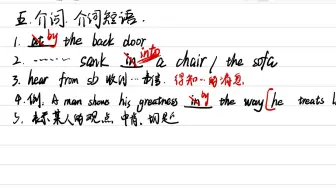 五. 介词. 介词短语.
1. at by the back door
2. ...... sank in into a chair / the sofa
3. hear from sb 收到…来信 得知…的消息
4. 例. A man shows his greatness in by the way [he treats
5. 表示某人的观点中肯、切题